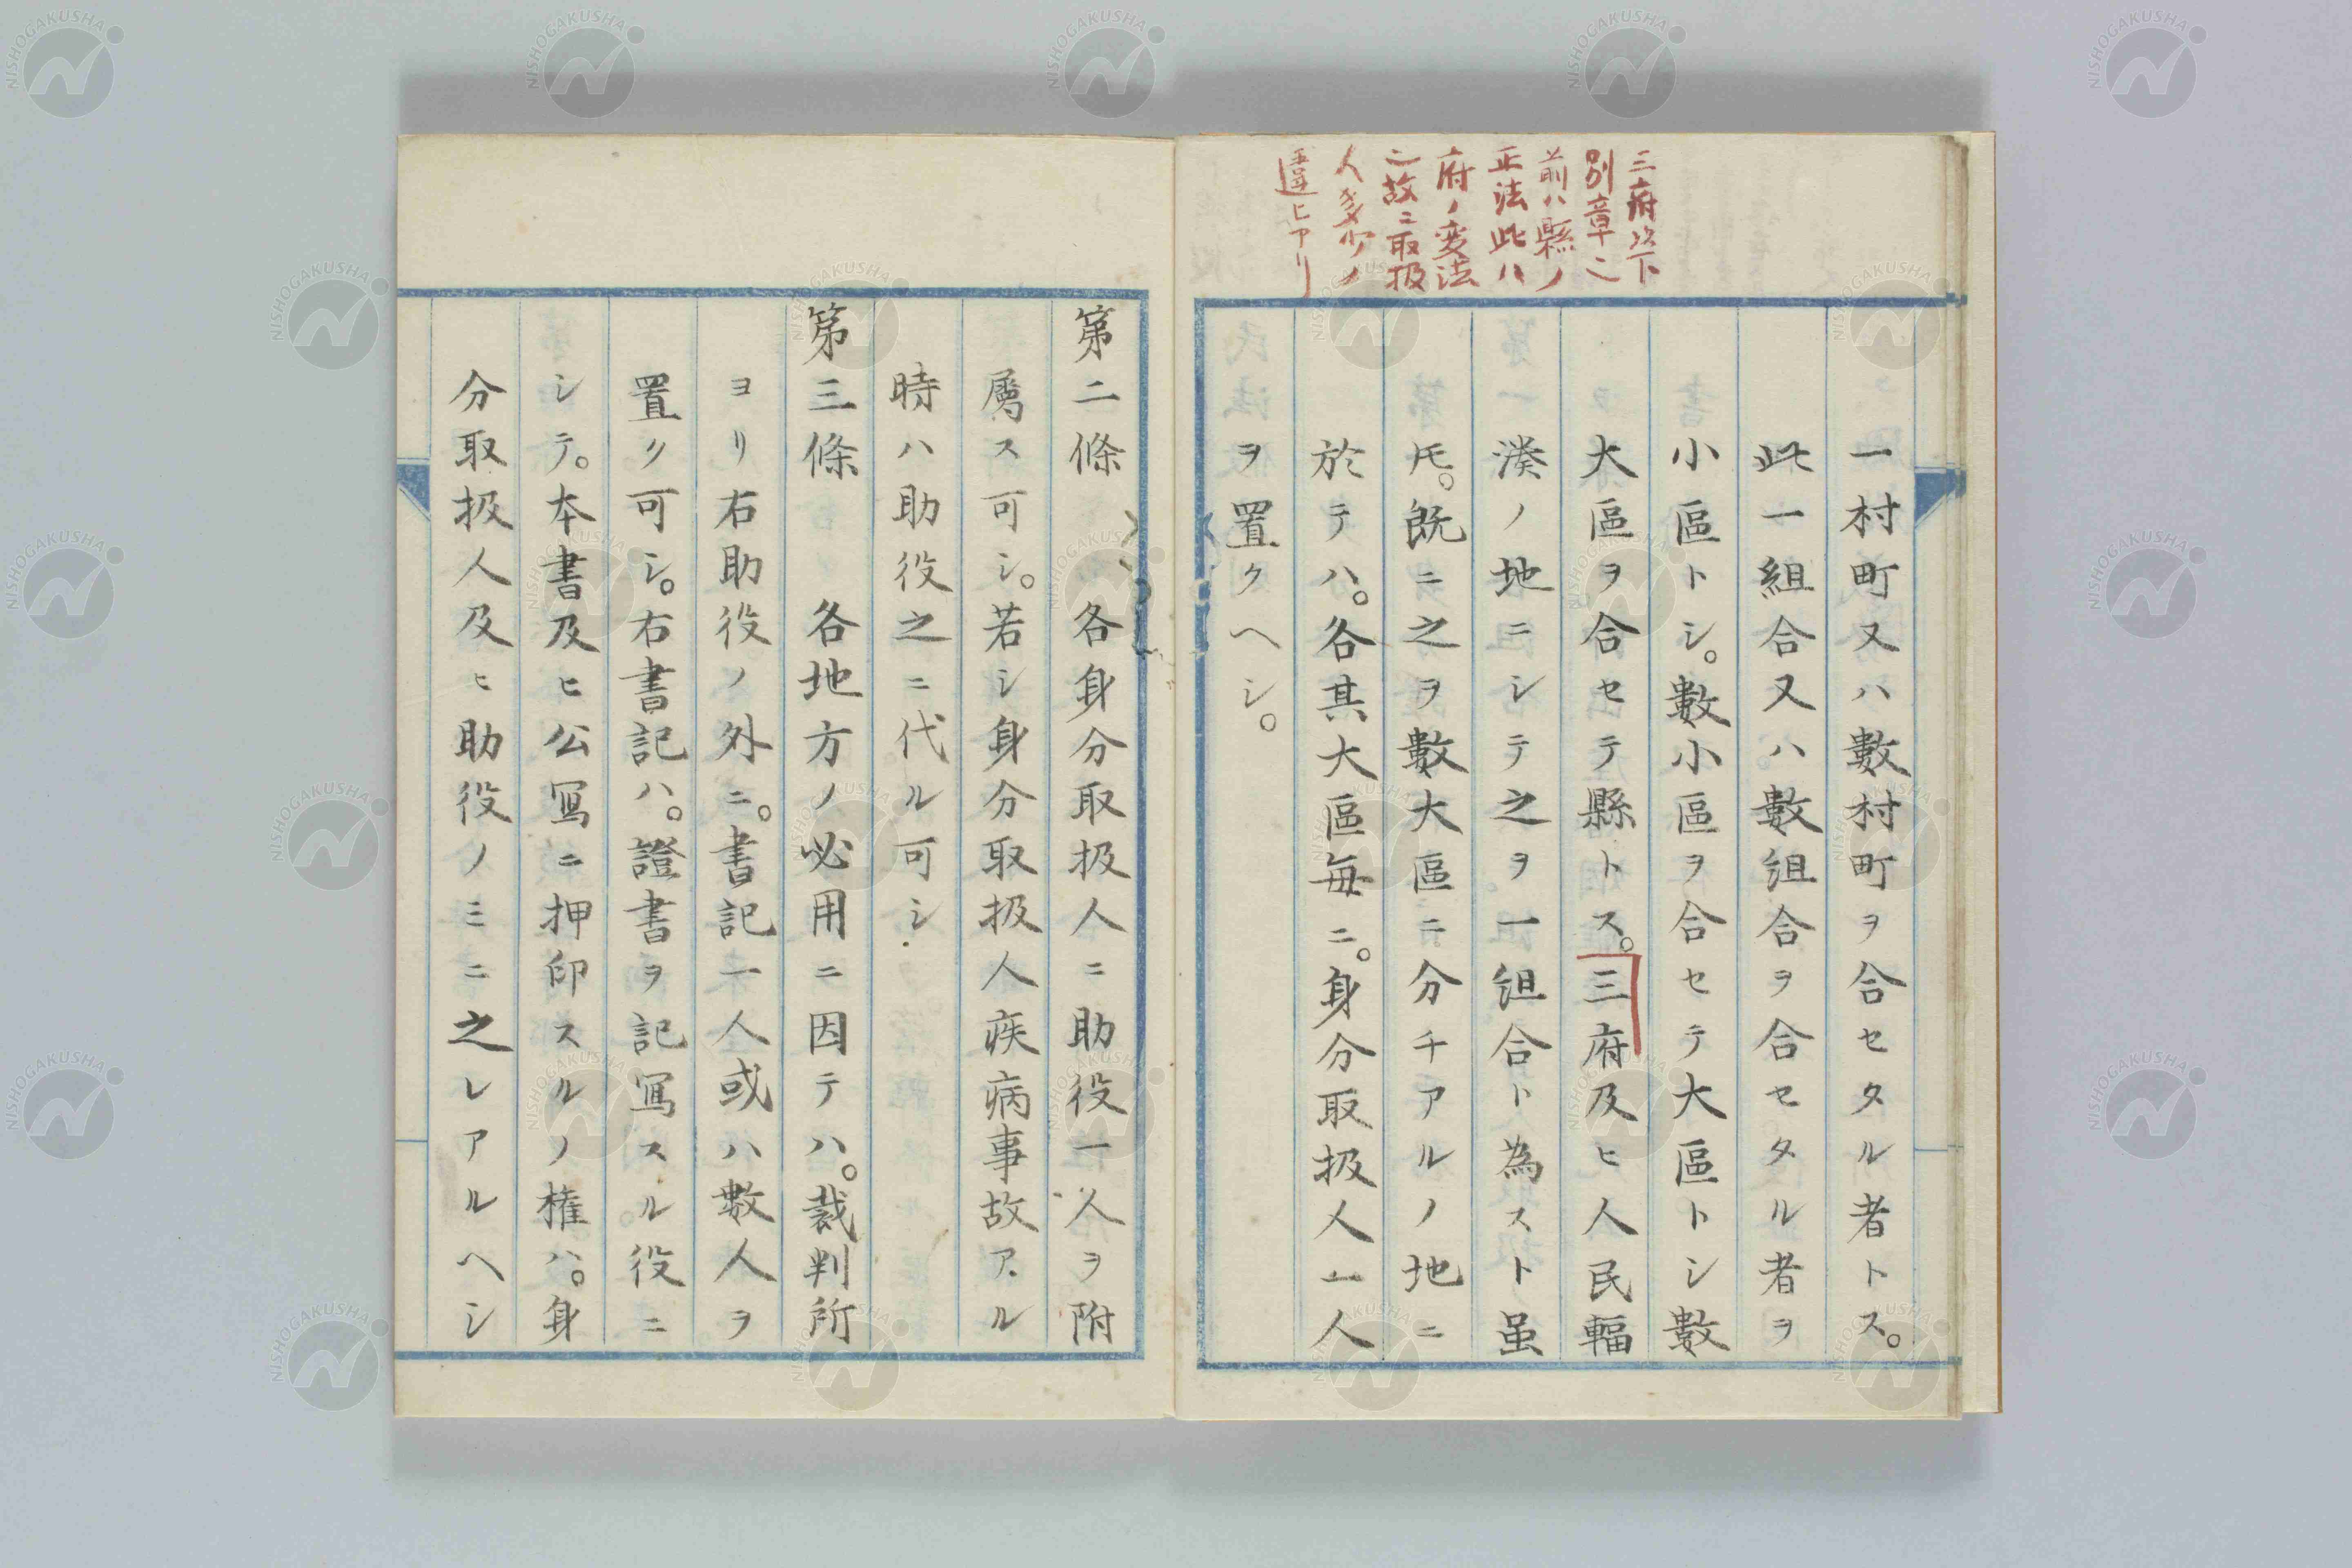 三府以下
別章ニ
前ハ縣ノ
正法此ハ
府ノ変法
ニ故ニ取扱
人多少ノ
違ヒアリ
一村町又ハ數村町ヲ合セタル者トス。
此一組合又ハ數組合ヲ合セタル者ヲ
小區トシ。數小區ヲ合セテ大區トシ數
大區ヲ合セテ縣トス。三府及ヒ人民輻
湊ノ地ニシテ之ヲ一組合ト為スト虽
𪜈。既ニ之ヲ數大區ニ分チアルノ地ニ
於テハ。各其大區毎ニ。身分取扱人一人
ヲ置クヘシ。
第二條　各身分取扱人ニ助役一人ヲ附
属ス可シ。若シ身分取扱人疾病事故アル
時ハ助役之ニ代ル可シ.
第三條　各地方ノ必用ニ因テハ。裁判所
ヨリ右助役ノ外ニ。書記一人或ハ數人ヲ
置ク可シ。右書記ハ。證書ヲ記寫スル役ニ
シテ。本書及ヒ公寫ニ押印スルノ権ハ。身
分取扱人及ヒ助役ノミニ之レアルヘシ
NISHOGAKUSHA